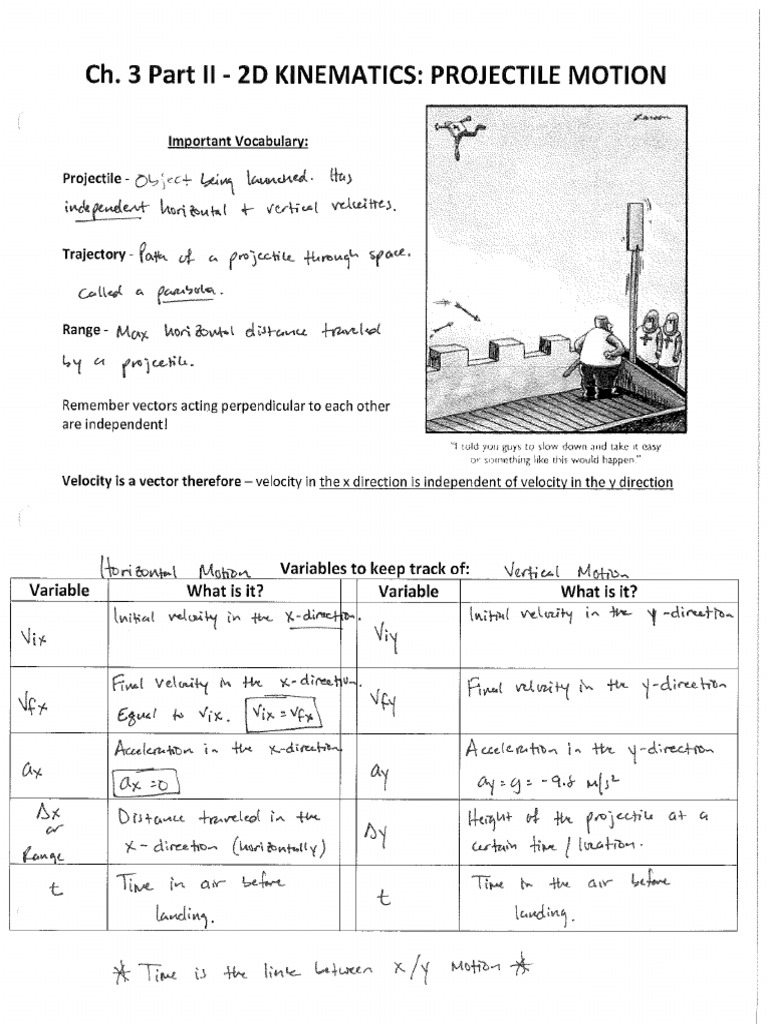 Ch. 3 Part II - 2D KINEMATICS: PROJECTILE MOTION
Larson
Important Vocabulary:
Projectile - Object being launched. Has
independent horizontal + vertical velocities.
Trajectory - Path of a projectile through space.
called a parabola.
Range - Max horizontal distance traveled
by a projectile.
Remember vectors acting perpendicular to each other
are independent!
"I told you guys to slow down and take it easy
or something like this would happen."
Velocity is a vector therefore – velocity in the x direction is independent of velocity in the y direction
Horizontal Motion Variables to keep track of: Vertical Motion
Variable What is it? Variable What is it?
Vix Initial velocity in the x-direction. Viy Initial velocity in the y-direction
Vfx Final velocity in the x-direction. Vfy Final velocity in the y-direction
Equal to Vix. Vix = Vfx
ax Acceleration in the x-direction ay Acceleration in the y-direction
ax = 0 ay = g = -9.8 m/s²
Δx Distance traveled in the Δy Height of the projectile at a
or x-direction (horizontally) certain time / location.
Range
t Time in air before t Time in the air before
landing. landing.
* Time is the link between x/y Motion *